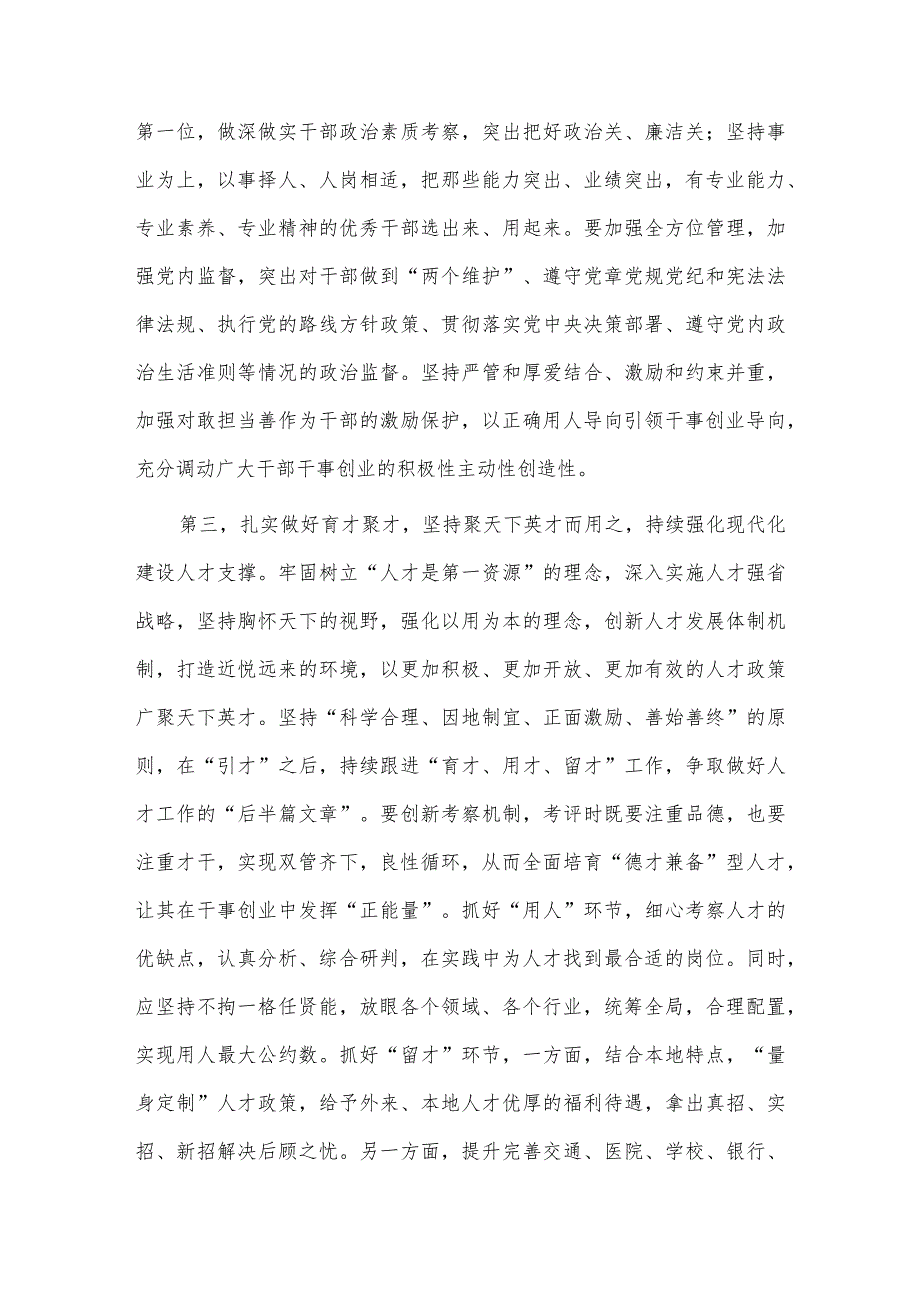 第一位，做深做实干部政治素质考察，突出把好政治关、廉洁关；坚持事
业为上，以事择人、人岗相适，把那些能力突出、业绩突出，有专业能力、
专业素养、专业精神的优秀干部选出来、用起来。要加强全方位管理，加
强党内监督，突出对干部做到“两个维护”、遵守党章党规党纪和宪法法
律法规、执行党的路线方针政策、贯彻落实党中央决策部署、遵守党内政
治生活准则等情况的政治监督。坚持严管和厚爱结合、激励和约束并重，
加强对敢担当善作为干部的激励保护，以正确用人导向引领干事创业导向，
充分调动广大干部干事创业的积极性主动性创造性。
第三，扎实做好育才聚才，坚持聚天下英才而用之，持续强化现代化
建设人才支撑。牢固树立“人才是第一资源”的理念，深入实施人才强省
战略，坚持胸怀天下的视野，强化以用为本的理念，创新人才发展体制机
制，打造近悦远来的环境，以更加积极、更加开放、更加有效的人才政策
广聚天下英才。坚持“科学合理、因地制宜、正面激励、善始善终”的原
则，在“引才”之后，持续跟进“育才、用才、留才”工作，争取做好人
才工作的“后半篇文章”。要创新考察机制，考评时既要注重品德，也要
注重才干，实现双管齐下，良性循环，从而全面培育“德才兼备”型人才，
让其在干事创业中发挥“正能量”。抓好“用人”环节，细心考察人才的
优缺点，认真分析、综合研判，在实践中为人才找到最合适的岗位。同时，
应坚持不拘一格任贤能，放眼各个领域、各个行业，统筹全局，合理配置，
实现用人最大公约数。抓好“留才”环节，一方面，结合本地特点，“量
身定制”人才政策，给予外来、本地人才优厚的福利待遇，拿出真招、实
招、新招解决后顾之忧。另一方面，提升完善交通、医院、学校、银行、